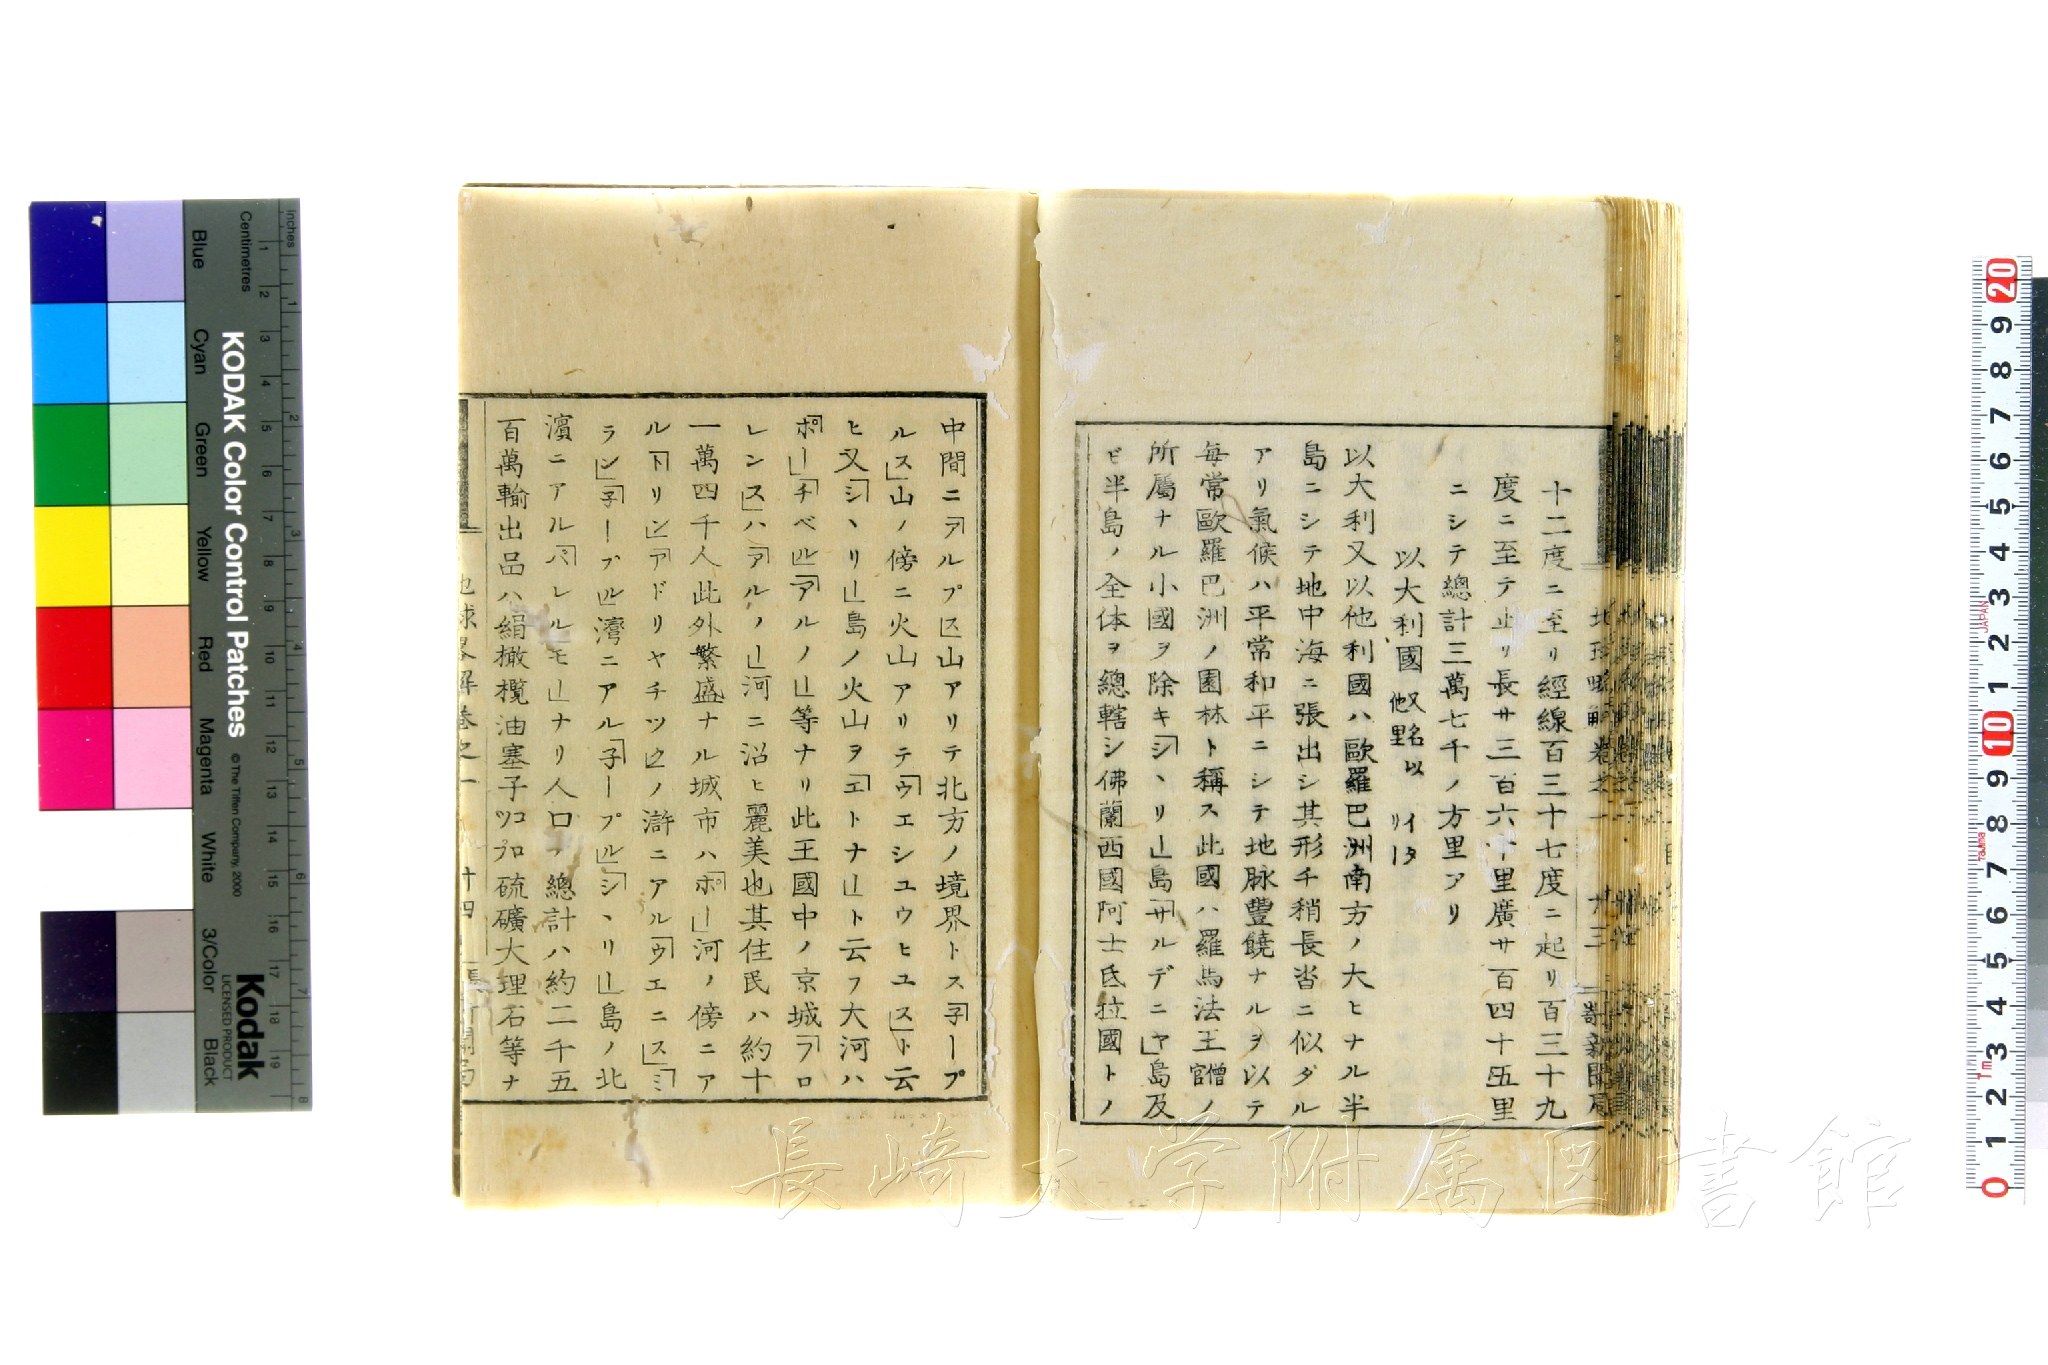 十二度ニ至リ經線百三十七度ニ起リ百三十九
度ニ至テ止リ長サ三百六十里廣サ百四十五里
ニシテ總計三萬七千ノ方里アリ
以大利國 又名以他里 イタリー
以大利又以他利國ハ歐羅巴洲南方ノ大ヒナル半
島ニシテ地中海ニ張出シ其形チ稍長沓ニ似ダル
アリ氣候ハ平常和平ニシテ地脉豐饒ナルヲ以テ
毎常歐羅巴洲ノ園林ト稱ス此國ハ羅馬法王官僧ノ
所屬ナル小國ヲ除キ「シヽリー」島「サルデニヤ」島及
ビ半島ノ全体ヲ總轄シ佛蘭西國阿士氐拉國トノ
中間ニ「アルプス」山アリテ北方ノ境界トス「子ープ
ルス」山ノ傍ニ火山アリテ「ウエシユウヒユス」ト云
ヒ又「シヽリー」島ノ火山ヲ「エトナー」ト云フ大河ハ
「ポー」「チベル」「アルノー」等ナリ此王國中ノ京城「フロ
レンス」ハ「アルノー」河ニ沿ヒ麗美也其住民ハ約十
一萬四千人此外繁盛ナル城市ハ「ポー」河ノ傍ニア
ル「トリン」「アドリヤチツク」ノ滸ニアル「ウエニス」「ミ
ラン」「子ープル」灣ニアル「子ープル」「シヽリー」島ノ北
濱ニアル「パレルモー」ナリ人口ノ總計ハ約二千五
百萬輸出品ハ絹橄欖油塞子ツコプロ硫礦大理石等ナ
地球畧解卷之一 十四
地球畧解卷之一 十三
新聞局
KODAK Color Control Patches
© The Tiffen Company, 2000
Kodak
LICENSED PRODUCT
Inches
Centimetres
Blue
Cyan
Green
Yellow
Red
Magenta
White
3/Color
Black
1 2 3 4 5 6 7 8 9 10 11 12 13 14 15 16 17 18 19
1 2 3 4 5 6 7 8
20 9 8 7 6 5 4 3 2 1 10 9 8 7 6 5 4 3 2 1 0
JAPAN
Tajima
長崎大学附属図書館